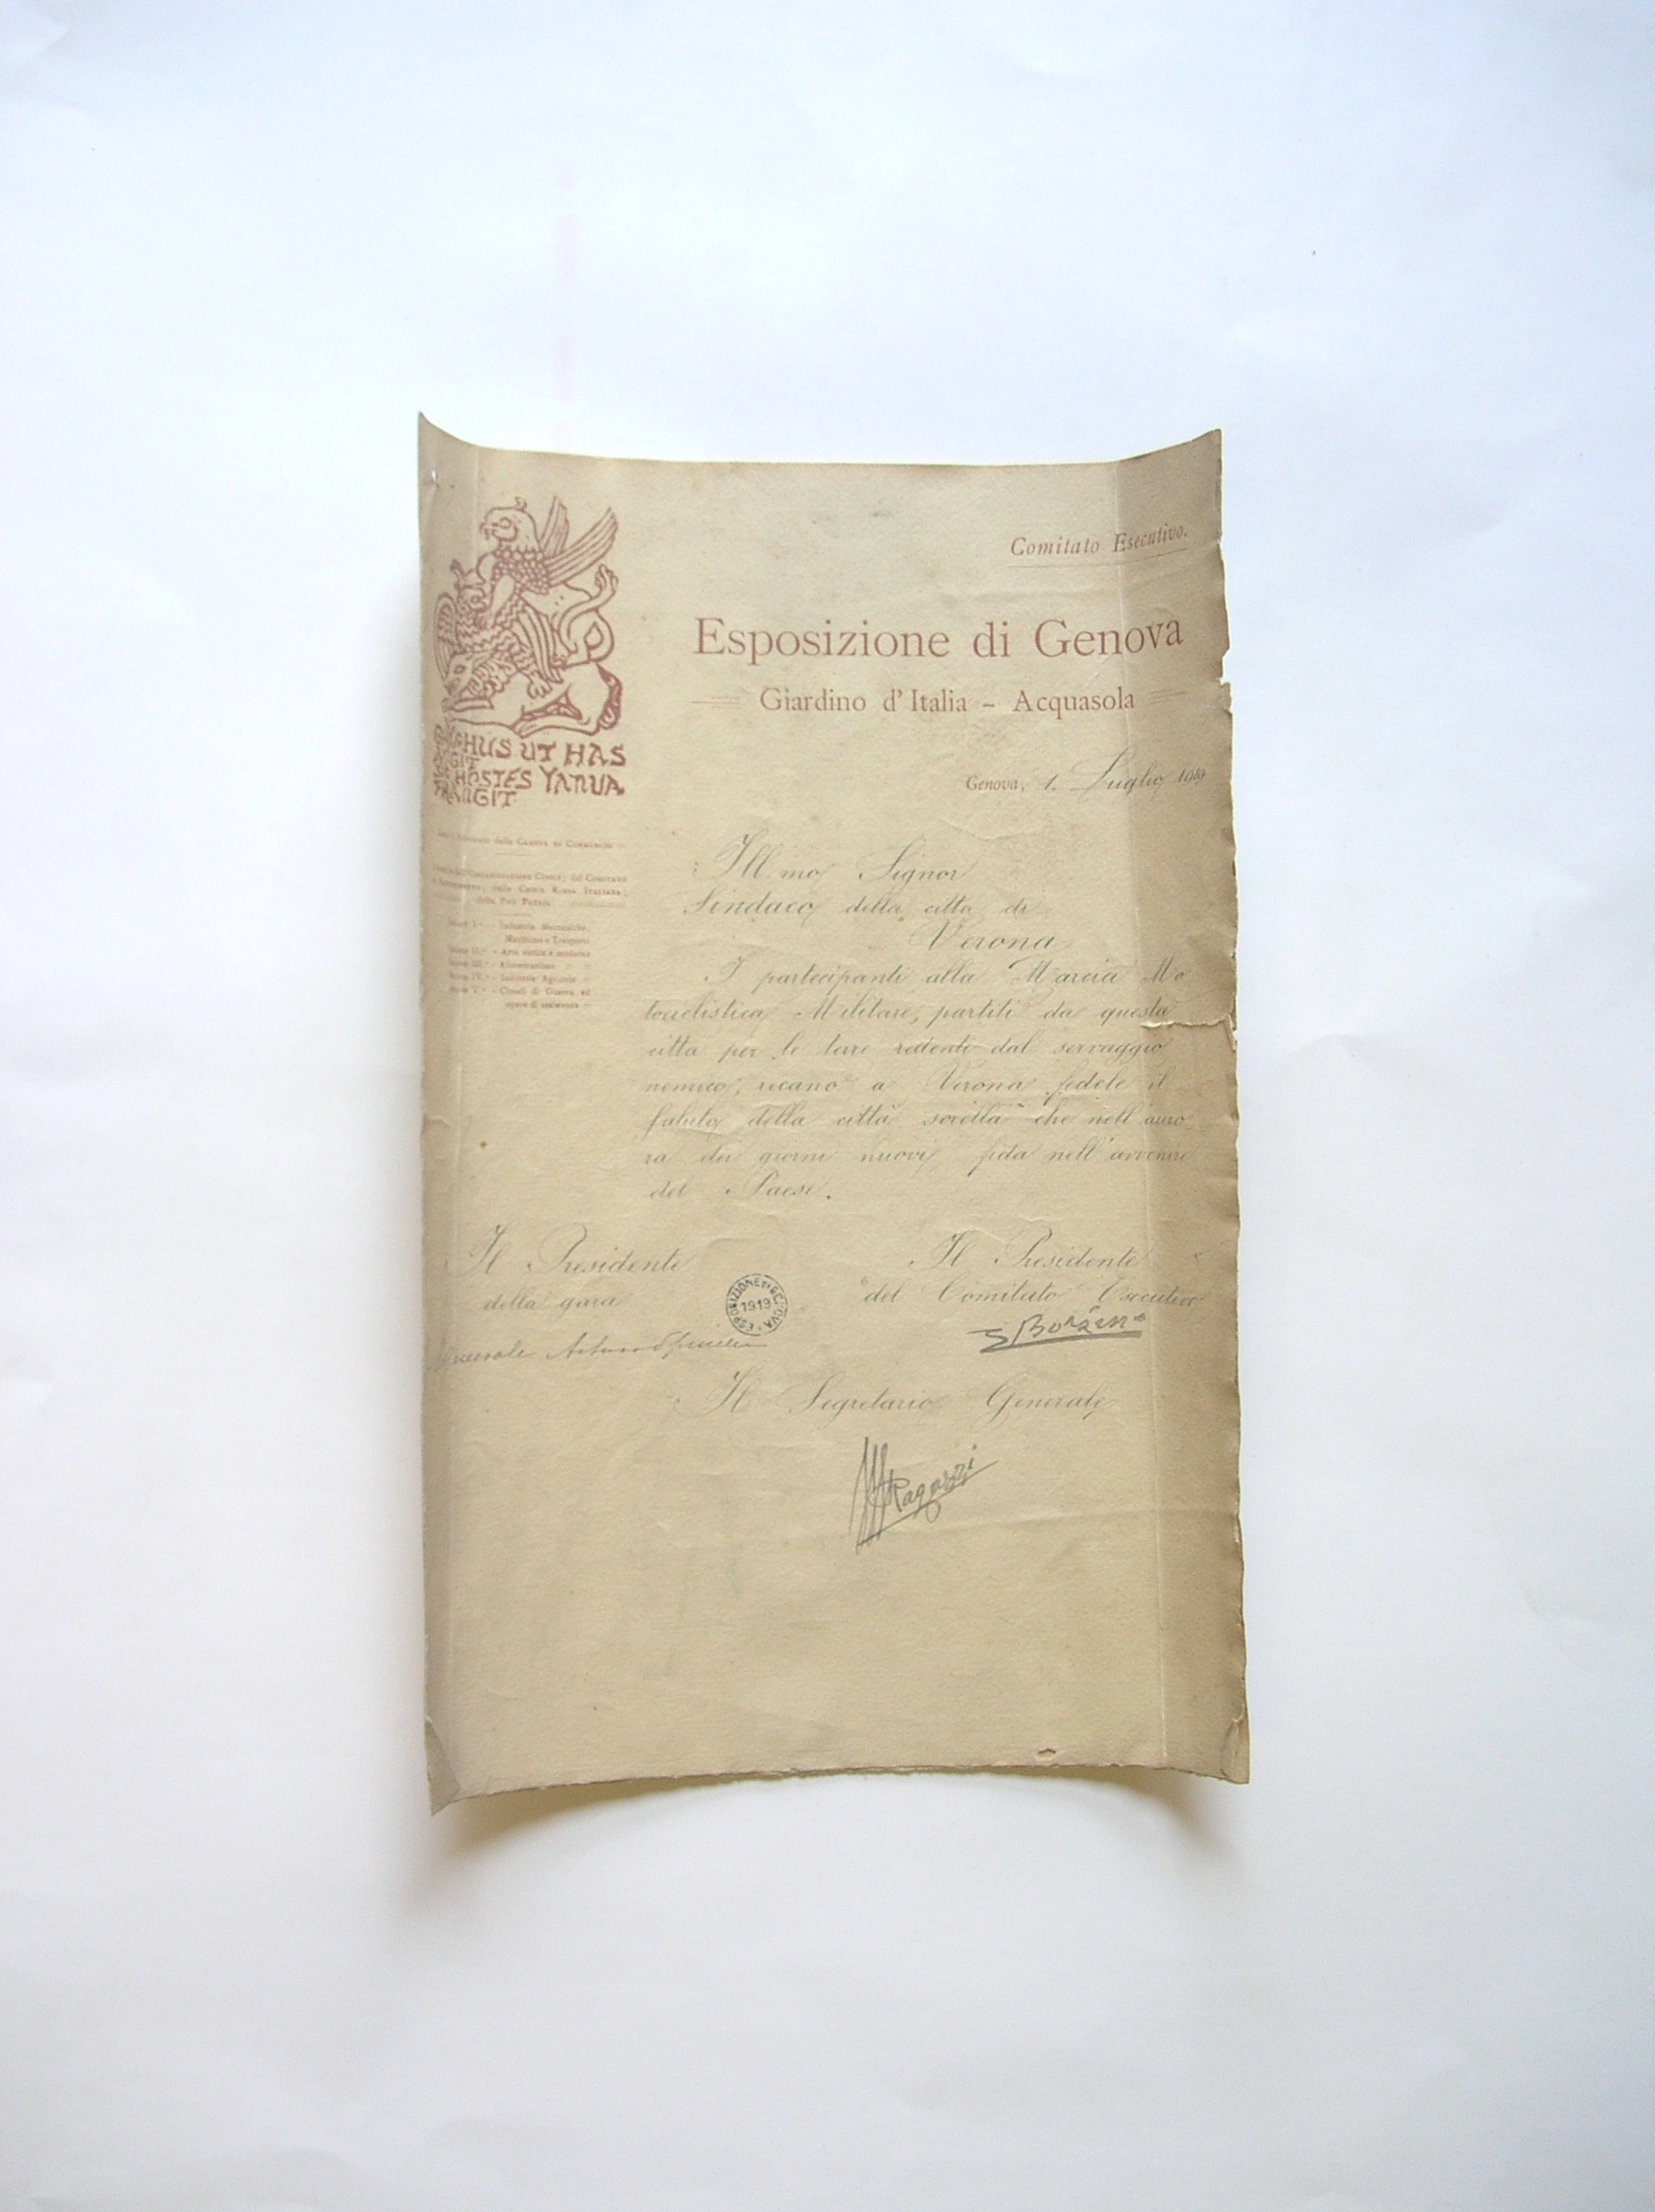 Comitato Esecutivo.
Esposizione di Genova
Giardino d'Italia - Acquasola
HUS UT HAS
GIT
HOSTES YANUA
FRANGIT
Genova, 1. Luglio 1919
della CAMERA DI COMMERCIO
ORGANIZZAZIONE CIVILE; del COMITATO
della CROCE ROSSA ITALIANA;
della PRO PATRIA
Industrie Meccaniche,
Marittime e Trasporti
Arte antica e moderna
Alimentazione
Industrie Agricole
Cimeli di Guerra ed
opere di assistenza
Ill.mo Signor
Sindaco della città di
Verona
I partecipanti alla Marcia Mo
tociclistica Militare, partiti da questa
città per le terre redente dal servaggio
nemico, recano a Verona fedele il
saluto della città sorella che nell'auro
ra dei giorni nuovi fida nell'avvenire
del Paese.
Il Presidente
della gara
Generale Arturo
ESPOSIZIONE DI GENOVA
1919
Il Presidente
del Comitato Esecutivo
Il Segretario Generale
Ragazzi